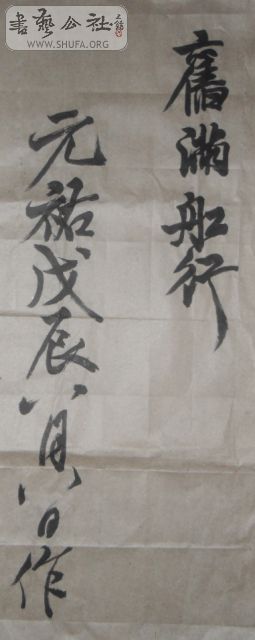 書藝公社
WWW.SHUFA.ORG
舊滿船行
元祐戊辰八月八日作